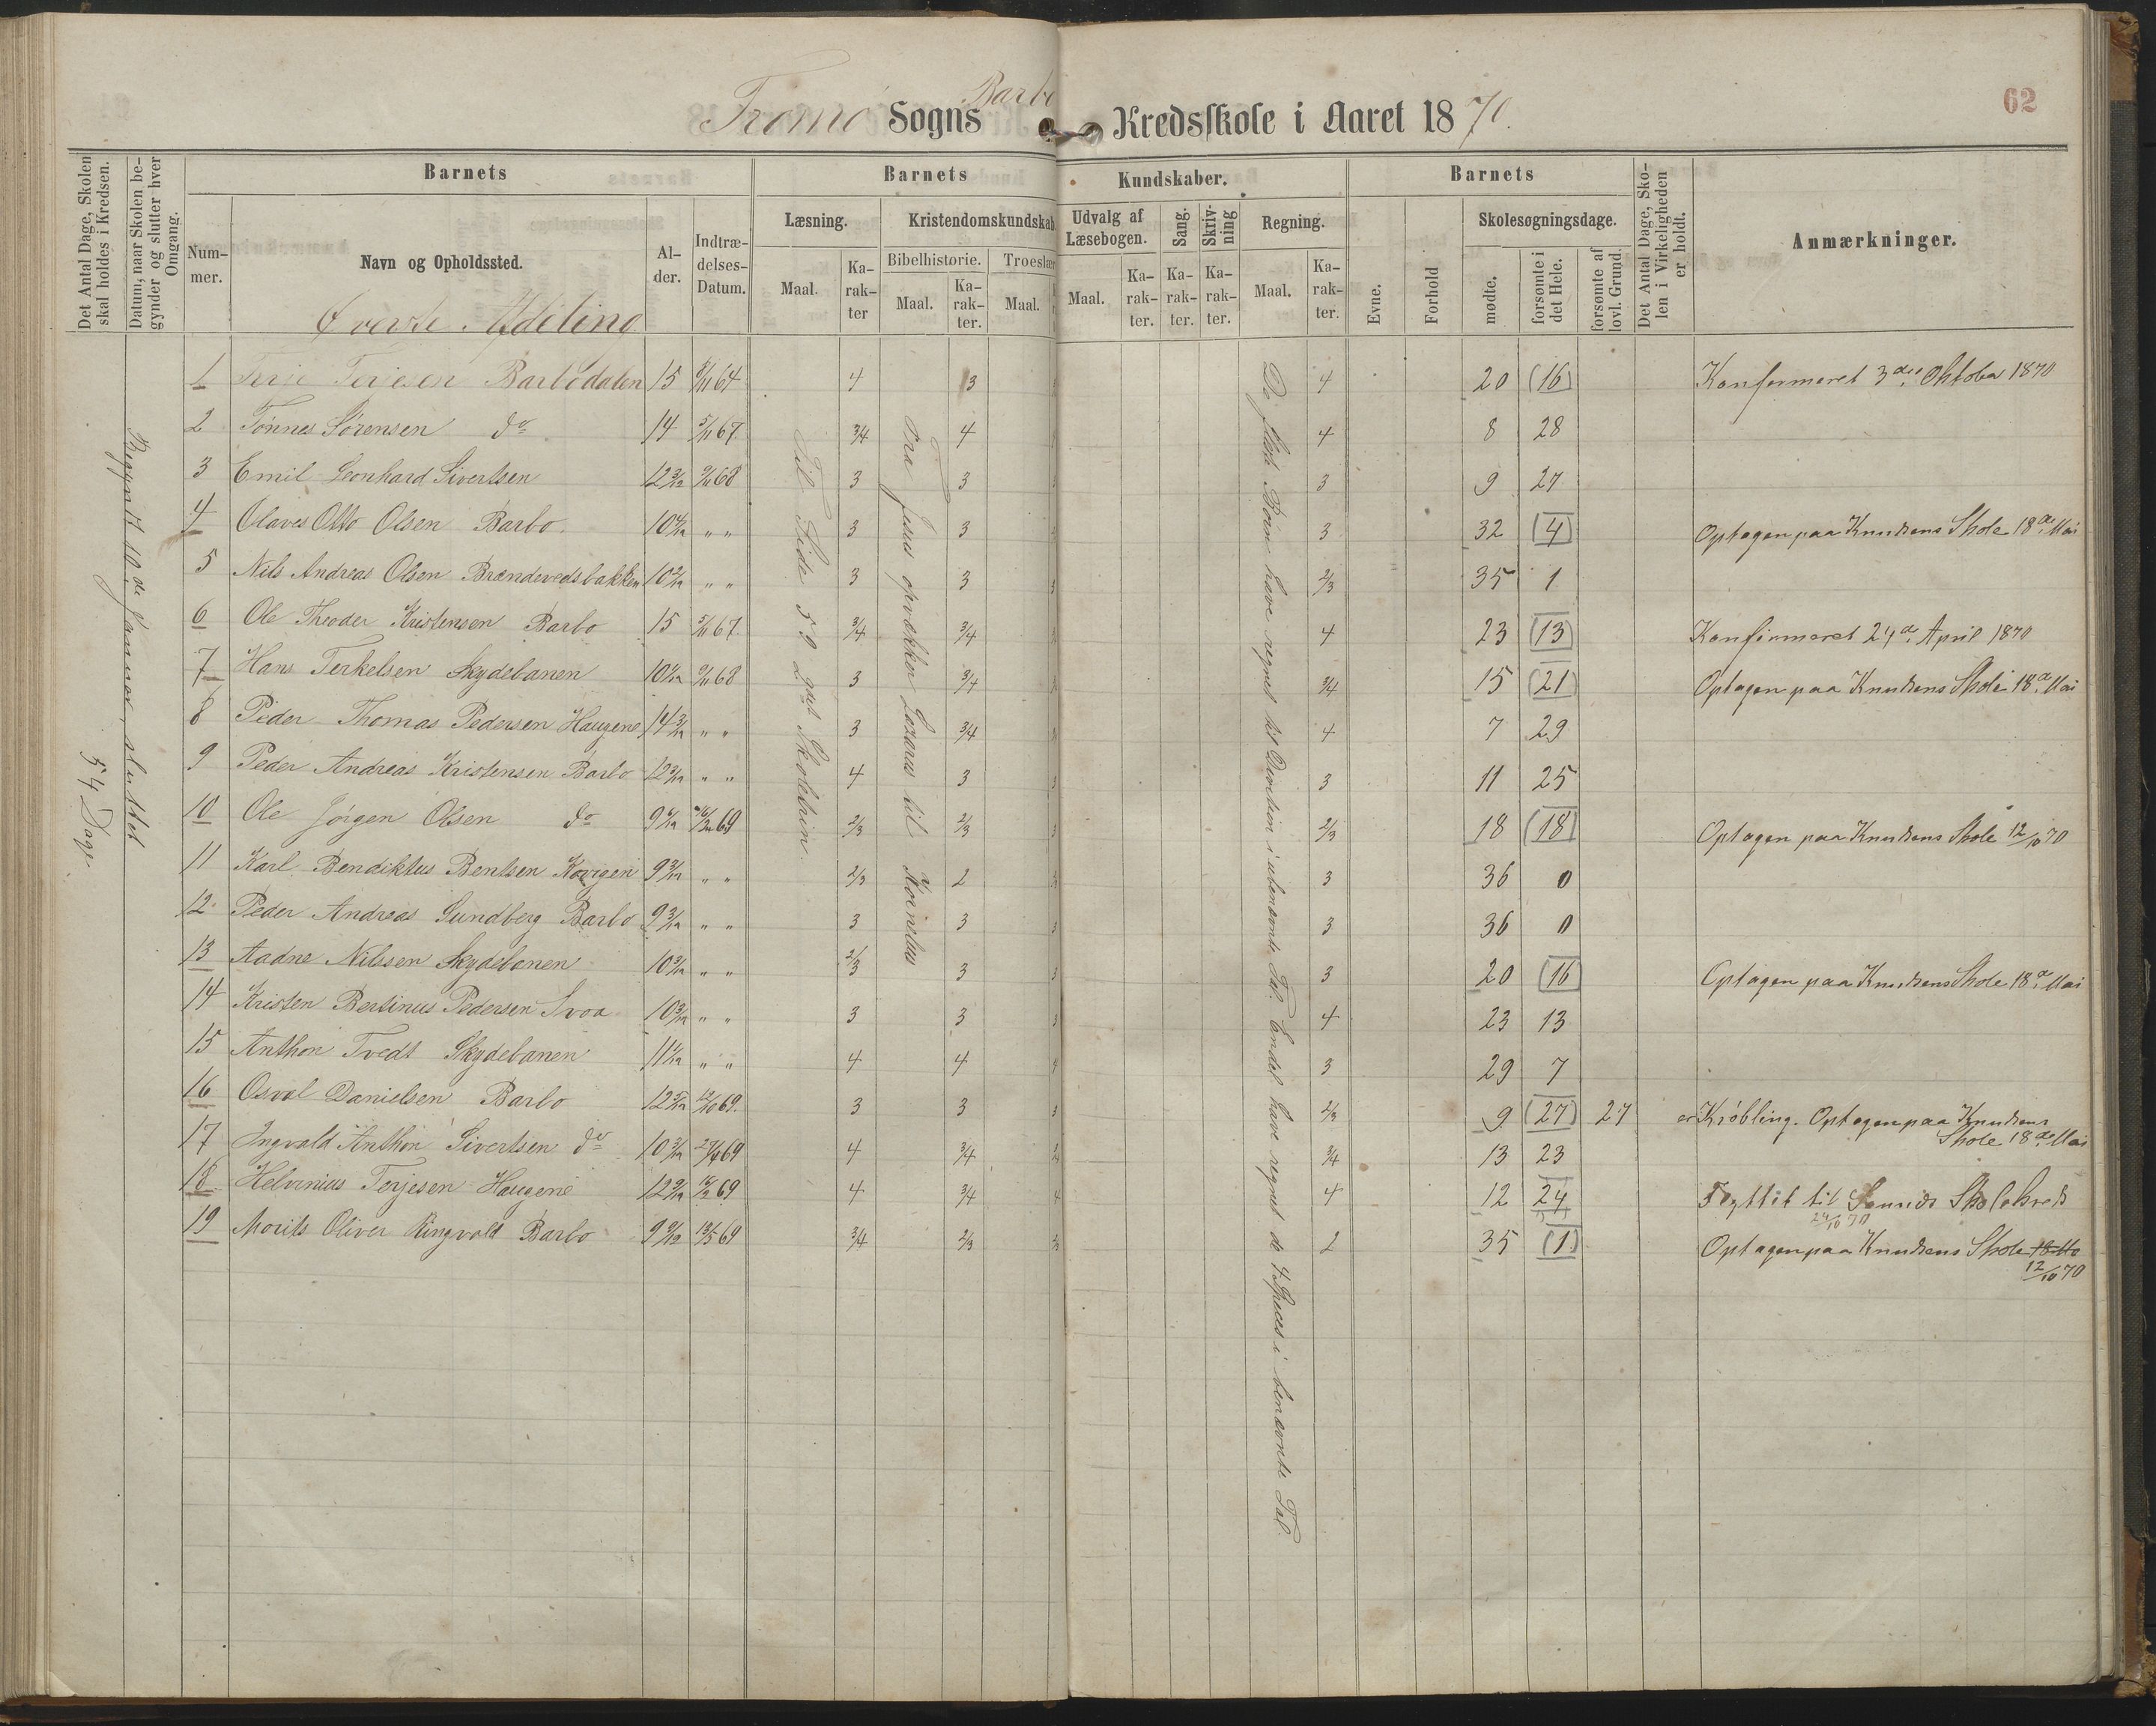 Tromø Sogns Barbo Kredsskole i Aaret 1870.
62
Det Antal Dage, Skolen skal holdes i Kredsen.
Datum, naar Skolen begynder og slutter hver Omgang.
Barnets
Nummer.
Navn og Opholdssted.
Alder.
Indtrædelses-Datum.
Barnets
Kundskaber.
Læsning.
Maal.
Karakter
Kristendomskundskab.
Bibelhistorie.
Maal.
Karakter.
Troeslær
Maal.
Udvalg af Læsebogen.
Maal.
Karakter.
Sang.
Karakter.
Skrivning
Karakter.
Regning.
Maal.
Karakter.
Barnets
Evne.
Forhold
Skolesøgningsdage.
mødte.
forsømte i det Hele.
forsømte af lovl. Grund.
Det Antal Dage, Skolen i Virkeligheden er holdt.
Anmærkninger.
Øverste Afdeling
Begyndt 10de Januar, sluttet
54 Dage.
Til Side 59 2det Skoletrin.
Fra Jesus opvækker Lazarus til Kornelius
De fleste Børn have regnet til Division i ubenævnte Tal. Endel have regnet de 4 Species i benævnte Tal.
1 Terje Terjesen Barbodalen 15 5/11 64 4 3 4 20 (16) Konfirmeret 3die Oktober 1870
2 Tønnes Sørensen do 14 5/11 67 3/4 4 4 8 28
3 Emil Leonhard Sivertsen 12 3/12 9/11 68 3 3 3 9 27
4 Olaves Otto Olsen Barbo 10 " " 3 3 3 32 (4) Optagen paa Knudsens Skole 18de Mai
5 Nils Andreas Olsen Brændevedsbakken 10 " " 3 3 2/3 35 1
6 Ole Theodor Kristensen Barbo 15 5/11 67 3/4 3/4 4 23 (13) Konfirmeret 24de April 1870
7 Hans Terkelsen Skydebanen 10 9/11 68 3 3/4 3/4 15 (21) Optagen paa Knudsens Skole 18de Mai
8 Peder Thomas Pedersen Haugene 14 3/12 " " 3 3/4 4 7 29
9 Peder Andreas Kristensen Barbo 12 " " 4 3 3 11 25
10 Ole Jørgen Olsen do 9 69 2/3 2/3 2/3 18 (18) Optagen paa Knudsens Skole 12/10 70
11 Karl Bendiktus Bentsen 9 " " 2/3 2 3 36 0
12 Peder Andreas Sundberg Barbo 9 3/12 " " 3 3 3 36 0
13 Aadne Nilssen Skydebanen 10 " " 2/3 3 3 20 (16) Optagen paa Knudsens Skole 18de Mai
14 Kristen Bertinus Pedersen Svoa 10 " " 3 3 4 23 13
15 Anthon Tvedt Skydebanen 11 " " 4 4 3 29 7
16 Osval Danielsen Barbo 12 12/10 69. 3 3 2/3 9 (27) 27 er Krøbling. Optagen paa Knudsens
Skole 18de Mai
17 Ingvald Anthon Sivertsen do 10 69 4 3/4 3/4 13 23
18 Helvinius Terjesen Haugene 12 69 4 3/4 4 12 24 Flyttet til Skolekreds
24/10 70
19 Morits Oliver Ringvold Barbo 9 13/5 69 3/4 2/3 2 35 (1) Optagen paa Knudsens Skole
12/10 70